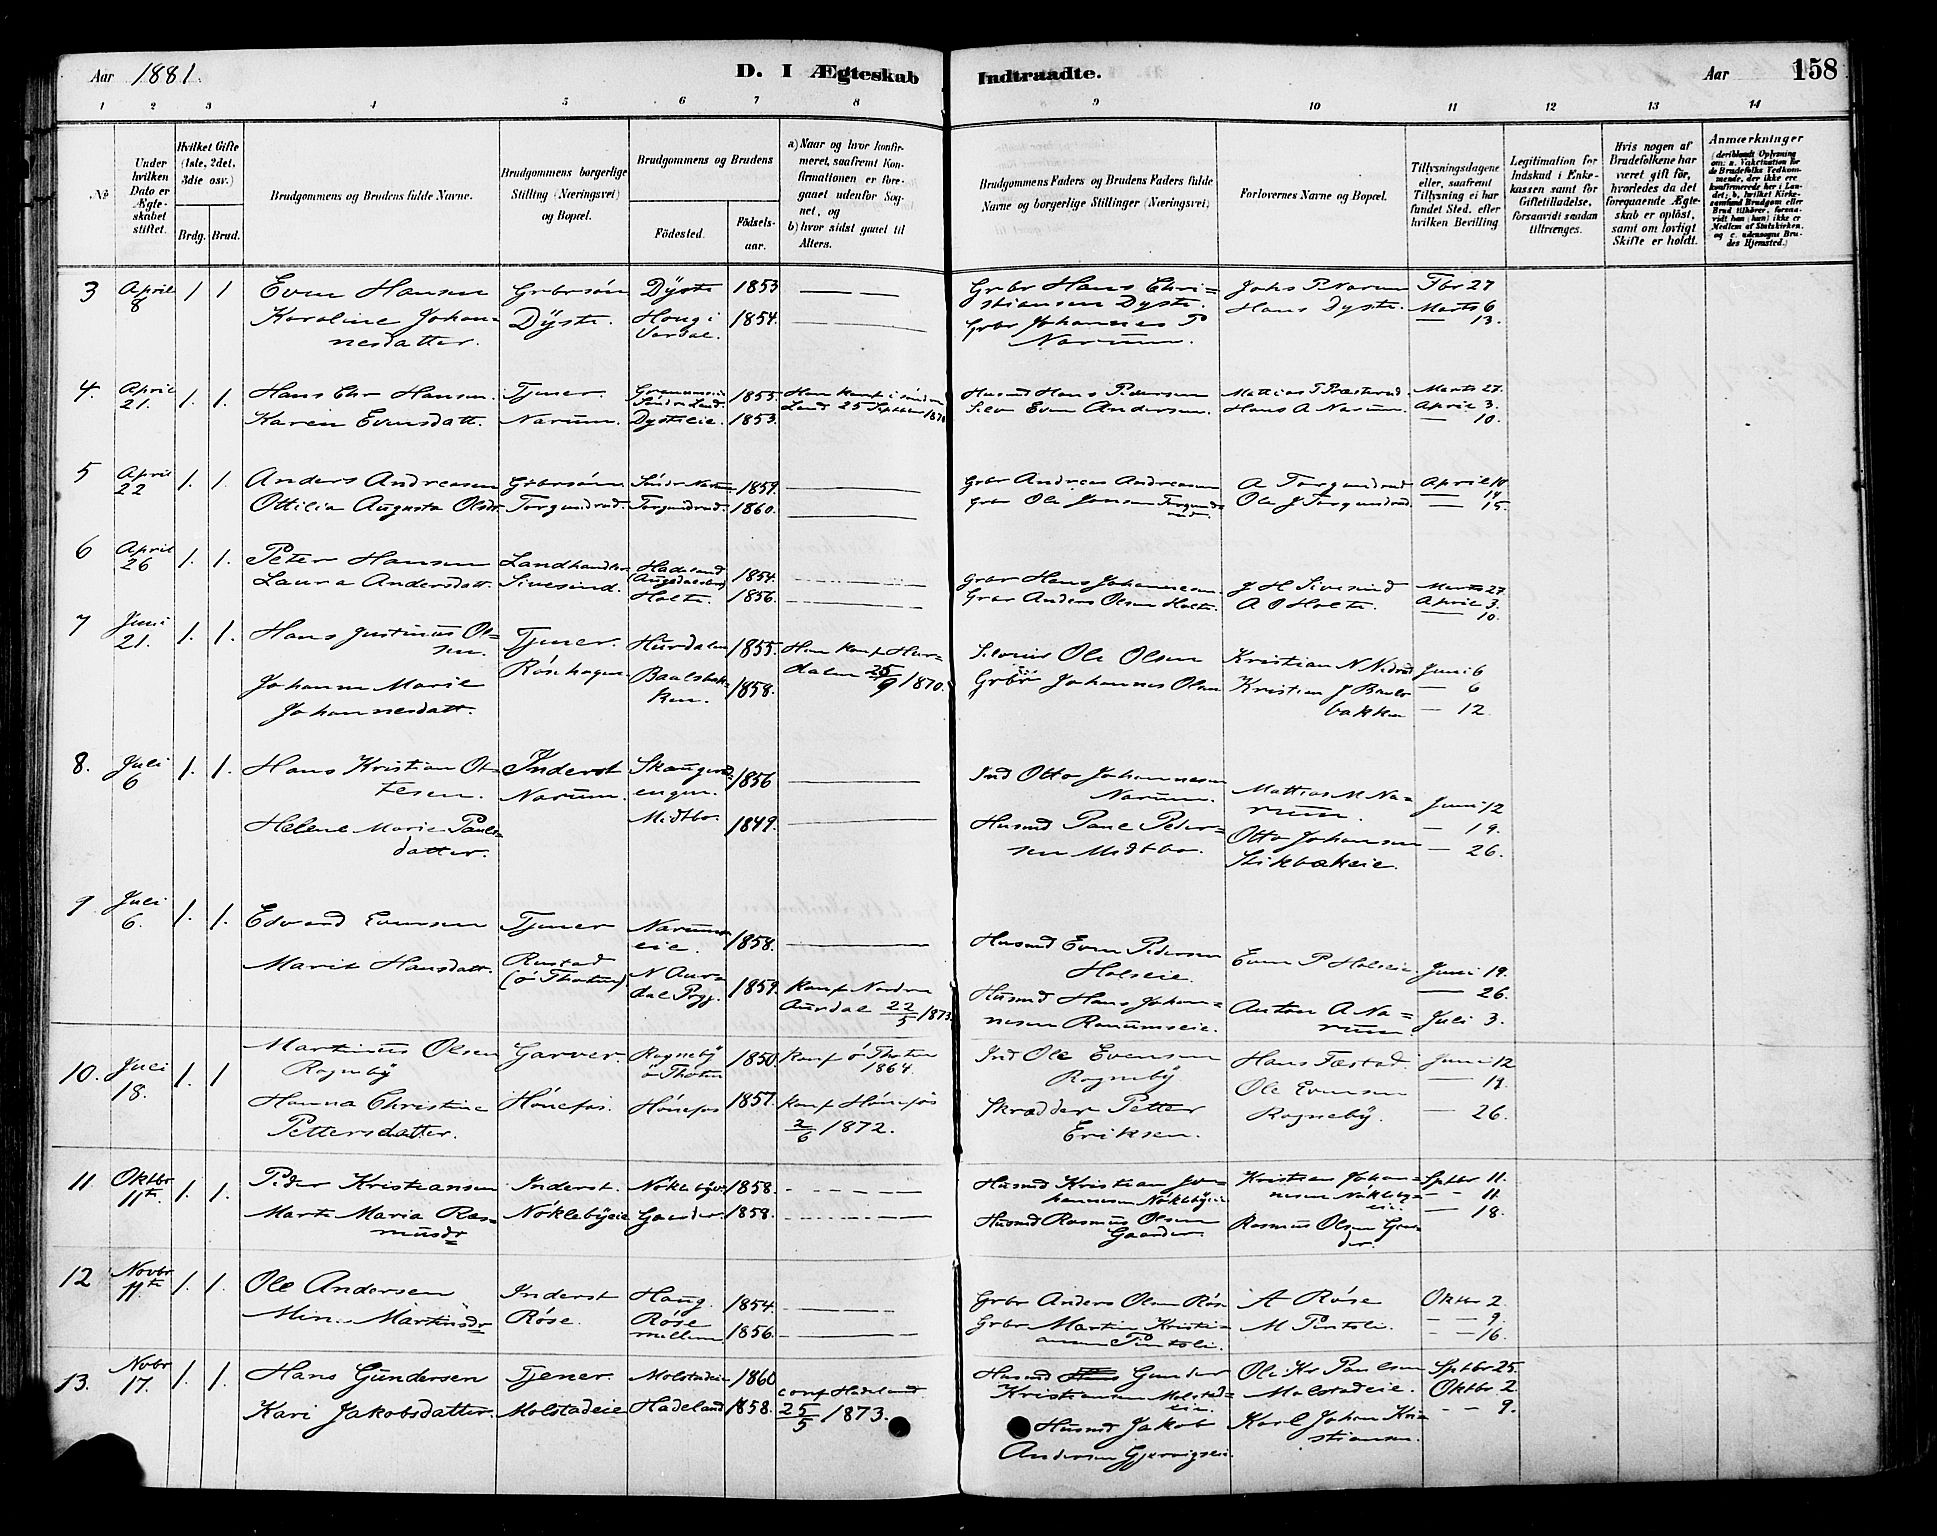 Aar 1881. D. I Ægteskab Indtraadte. Aar 158
1 2 3 4 5 6 7 8 9 10 11 12 13 14
No
Under hvilken Dato er Ægteskabet stiftet.
Hvilket Gifte (1ste, 2det, 3die osv.)
Brdg. Brud.
Brudgommens og Brudens fulde Navne.
Brudgommens borgerlige Stilling (Næringsvei) og Bopæl.
Brudgommens og Brudens
Fødested.
Fødselsaar.
a) Naar og hvor konfirmeret, saafremt Konfirmationen er foregaaet udenfor Sognet, og
b) hvor sidst gaaet til Alters.
Brudgommens Faders og Brudens Faders fulde Navne og borgerlige Stillinger (Næringsvei)
Forlovernes Navne og Bopæl.
Tillysningsdagene eller, saafremt Tillysning ei har fundet Sted, efter hvilken Bevilling
Legitimation for Indskud i Enkekassen samt for Giftetilladelse, forsaavidt saadan tiltrænges.
Hvis nogen af Brudefolkene har været gift før, hvorledes da det foregaaende Ægteskab er opløst, samt om lovligt Skifte er holdt.
Anmærkninger
(deriblandt Oplysning om: a. Vakcination for de Brudefolks Vedkommende, der ikke ere konfirmerede her i Landet; b. hvilket Kirkesamfund Brudgom eller Brud tilhører, forsaavidt han (hun) ikke er Medlem af Statskirken, og c. udensogns Brudes Hjemsted.)
3 April 8 1 1 Even Hansen Grbrsøn Dyste 1853 Grbr Hans Christiansen Dyste. Johs P Narum Fbr 27
Karoline Johannesdatter. Dyste. Houg i Vardal. 1854. Grbr Johannes P Narum. Hans Dyste. Marts 6
— 13.
4. April 21. 1. 1. Hans Chr Hansen. Tjener. Søndre Land. 1855. Han konf i søndre Land 25 Septbr 1870 Husmd Hans Pedersen Mathias P Præsterud Marts 27.
Karen Evensdatt. Narum. Dysteeie. 1853. Selv Even Andersen. Hans A Narum. April 3.
— 10.
5 April 22 1. 1. Anders Andreasen Grbrsøn. Søndr Narum 1859. Grbr Andreas Andreasen A Torgundrud April 10
Ottilia Augusta Olsdr. Torgundrud. Torgundrud. 1860. Grbr Ole Jonsen Torgundrud. Ole J Torgundrud. — 14
— 15.
6 April 26 1. 1. Peter Hansen Landhandler Hadeland 1854. Grbr Hans Johannesen J H Sivesind Marts 27
Laura Andersdatt. Sivesind. Holte. 1856. Grbr Anders Olsen Holte. A O Holte. April 3.
— 10.
7 Juni 21. 1. 1. Hans Justinus Olsen. Tjener. Hurdalen 1855. Han konf Hurdalen 25/9 1870. Selveier Ole Olsen Kristian N Nedrud Juni 6
Johanne Marie Johannesdatt. Røsehagen. Baalsbakken. 1858. Grbr Johannes Olsen Kristian J Baalsbakken — 6
— 12.
8. Juli 6 1. 1. Hans Kristian Ottesen. Inderst Skaugerudengen. 1856 Ind Otto Johannesen Narum. Mattias M Narum. Juni 12
Helene Marie Paulsdatter. Narum. Midtbo. 1849. Husmd Paul Pedersen Midtbo. Otto Johansen Stikbækeie. — 19.
— 26.
9 Juli 6. 1. 1. Edvard Evensen Tjener Narumseie. 1858. Husmd Even Pedersen Holseie. Even P Holseie Juni 19.
Marit Hansdatt. Rustad (ø Thoten) N Aurdal Prgj. 1859. konf Nordre Aurdal 22/5 1873. Husmd Hans Johannesen Ranumseie. Anton A Narum. — 26.
Juli 3.
10. Juli 18. 1. 1 Martinus Olsen Rogneby Garver. Rogneby ø Thoten 1850. konf ø Thoten 1864. Ind Ole Evensen Rogneby Hans Fæstad. Juni 12
Hanna Christine Pettersdatter. Hønefos. Hønefos 1857. konf Hønefos 2/6 1872. Skrædder Petter Eriksen. Ole Evensen Rogneby. — 19.
— 26.
11 Oktbr 11te. 1. 1. Peder Kristiansen Inderst. Nøklebye 1858. Husmd Kristian Johannesen Nøklebyeie Kristian Johannesen Nøklebyeie. Sptbr 11.
Marte Maria Rasmusdr Nøklebyeie Gaarder 1858. Husmd Rasmus Olsen Gaarder. Rasmus Olsen Gaarder. — 11.
— 18.
12 Novbr 11te 1. 1. Ole Andersen Inderst Haug. 1854. Grbr Anders Olsen Røse A Røse Oktbr 2.
Min. Martinsdr Røse. Røse mellem 1856. Grbr Martin Kristiansen Pintoli. M Pintoli. — 9.
— 16.
13. Novbr 17. 1. 1. Hans Gundersen Tjener. Molstadeie 1860 Husmd Gunder Kristiansen Molstadeie. Ole Kr Paulsen Molstadeie. Sptbr 25.
Kari Jakobsdatter. Molstadeie Hadeland 1858. conf Hadeland 25/5 1873. Husmd Jakob Andersen Gjervigseie. Karl Johan Kristiansen. Oktbr 2.
— 9.